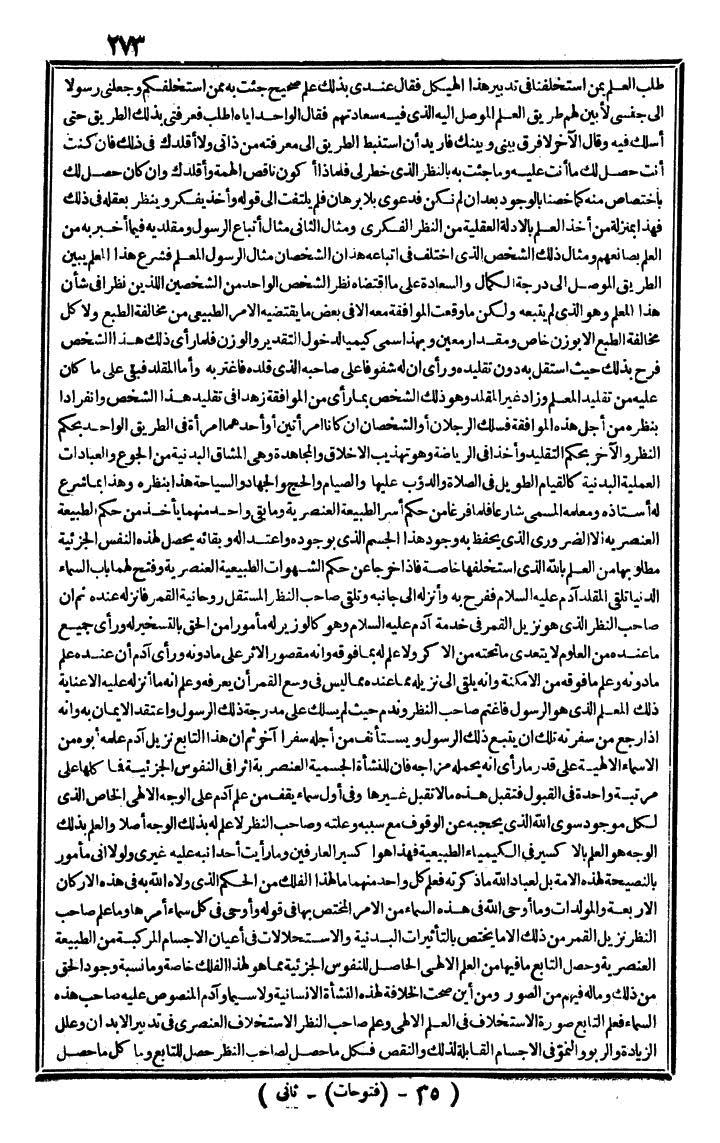 ٢٧٣
طلب العلم بمن استخلفنا فى تدبير هذا الهيكل فقال عندى بذلك علم صحيح جئت به ممن استخلفكم وجعلنى رسولا
الى جنسى لأبين لهم طريق العلم الموصل اليه الذى فيه سعادتهم فقال الواحد اياه اطلب فعرفنى بذلك الطريق حتى
أسلك فيه وقال الآخر لا فرق بينى وبينك فاريد أن أستنبط الطريق الى معرفته من ذاتى ولا أقلدك فى ذلك فان كنت
أنت حصل لك ما أنت عليه وما جئت به بالنظر الذى خطر لى فلماذا أكون ناقص الهمة وأقلدك وان كان حصل لك
باختصاص منه كما خصنا بالوجود بعد ان لم نكن فدعوى بلا برهان فلم يلتفت الى قوله وأخذ يفكر وينظر بعقله فى ذلك
فهذا بمنزلة من أخذ العلم بالادلة العقلية من النظر الفكرى ومثال الثانى مثال أتباع الرسول ومقلديه فيما أخبر به من
العلم بصانعهم ومثال ذلك الشخص الذى اختلف فى اتباعه هذان الشخصان مثال الرسول المعلم فشرع هذا المعلم يبين
الطريق الموصل الى درجة الكمال والسعادة على ما اقتضاه نظر الشخص الواحد من الشخصين اللذين نظر افى شأن
هذا المعلم وهو الذى لم يتبعه ولكن ما وقعت الموافقة معه الا فى بعض ما يقتضيه الامر الطبيعى من مخالفة الطبع ولا كل
مخالفة الطبع الا بوزن خاص ومقدار معين وبهذا سمى كيميا لدخول التقدير والوزن فلما رأى ذلك هذا الشخص
فرح بذلك حيث استقل به دون تقليده ورأى ان له شفوفا على صاحبه الذى قلده فاغتر به وأما المقلد فبقى على ما كان
عليه من تقليد المعلم وزاد غير المقلد وهو ذلك الشخص بما رأى من الموافقة زهدا فى تقليد هذا الشخص وانفرادا
بنظره من أجل هذه الموافقة فسلك الرجلان أو الشخصان ان كانا امرأتين أو أحدهما امرأة فى الطريق الواحد بحكم
النظر والآخر بحكم التقليد وأخذا فى الرياضة وهو تهذيب الاخلاق والمجاهدة وهى المشاق البدنية من الجوع والعبادات
العملية البدنية كالقيام الطويل فى الصلاة والدؤب عليها والصيام والحج والجهاد والسياحة هذا بنظره وهذا بما شرع
له أستاذه ومعلمه المسمى شارعا فلما فرغا من حكم أسر الطبيعة العنصرية وما بقى واحد منهما يأخذ من حكم الطبيعة
العنصرية الا الضرورى الذى يحفظ به وجود هذا الجسم الذى بوجوده واعتداله وبقائه يحصل لهذه النفس الجزئية
مطلوبها من العلم بالله الذى استخلفها خاصة فاذا خرجا عن حكم الشهوات الطبيعية العنصرية وفتح لهما باب السماء
الدنيا تلقى المقلد آدم عليه السلام ففرح به وأنزله الى جانبه وتلقى صاحب النظر المستقل روحانية القمر فانزله عنده ثم ان
صاحب النظر الذى هو نزيل القمر فى خدمة آدم عليه السلام وهو كالوزير له مأمورا من الحق بالتسخير له ورأى جميع
ما عنده من العلوم لا يتعدى ما تحته من الاكر ولا علم له بما فوقه وانه مقصور الاثر على ما دونه ورأى آدم أن عنده علم
ما دونه وعلم ما فوقه من الامكنة وانه يلقى الى نزيله مما عنده مما ليس فى وسع القمر أن يعرفه وعلم انه ما أنزله عليه الا عناية
ذلك المعلم الذى هو الرسول فاغتم صاحب النظر وندم حيث لم يسلك على مدرجة ذلك الرسول واعتقد الايمان به وانه
اذا رجع من سفرته تلك ان يتبع ذلك الرسول ويستأنف من أجله سفرا آخر ثم ان هذا التابع نزيل آدم علمه أبوه من
الاسماء الالهية على قدر ما رأى انه يحمله مزاجه فان للنشأة الجسمية العنصرية اثرا فى النفوس الجزئية فما كلها على
مرتبة واحدة فى القبول فتقبل هذه ما لا تقبل غيرها وفى أول سماء يقف من علم آدم على الوجه الالهى الخاص الذى
لكل موجود سوى الله الذى يحجبه عن الوقوف مع سببه وعلته وصاحب النظر لا علم له بذلك الوجه أصلا والعلم بذلك
الوجه هو العلم بالاكسير فى الكيمياء الطبيعية فهذا هو اكسير العارفين وما رأيت أحدا نبه عليه غيرى ولولا انى مأمور
بالنصيحة لهذه الامة بل لعباد الله ما ذكرته فعلم كل واحد منهما ما لهذا الفلك من الحكم الذى ولاه الله به فى هذه الاركان
الاربعة والمولدات وما أوحى الله فى هذه السماء من الامر المختص بها فى قوله وأوحى فى كل سماء أمرها وما علم صاحب
النظر نزيل القمر من ذلك الا ما يختص بالتأثيرات البدنية والاستحلالات فى أعيان الاجسام المركبة من الطبيعة
العنصرية وحصل التابع ما فيها من العلم الالهى الحاصل للنفوس الجزئية مما هو لهذا الفلك خاصة وما نسبة وجود الحق
من ذلك وماله فيهم من الصور ومن أين صحت الخلافة لهذه النشأة الانسانية ولا سيما وآدم المنصوص عليه صاحب هذه
السماء فعلم التابع صورة الاستخلاف فى العلم الالهى وعلم صاحب النظر الاستخلاف العنصرى فى تدبير الابدان وعلل
الزيادة والربو والنمو فى الاجسام القابلة لذلك والنقص فكل ما حصل لصاحب النظر حصل للتابع وما كل ما حصل
( ٣٥ - (فتوحات) - ثانى )